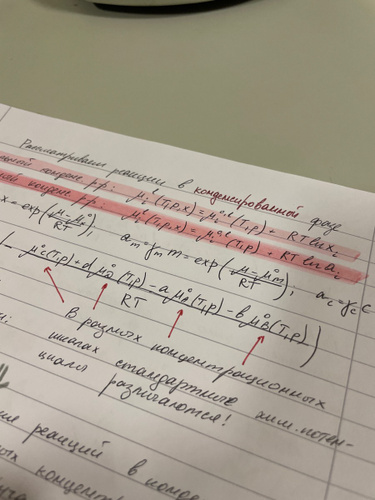 Рассматриваем реакции в конденсированной фазе
конденс р-р: μᵢˡ(T,p,x) = μᵢ°ˡ(T,p) + RT ln xᵢ
конденс р-р: μᵢˡ(T,p,x) = μᵢ°ˡ(T,p) + RT ln aᵢ
x = exp((μ-μₓ°)/RT); aₘ = γₘ m = exp((μ-μ°ₘ)/RT); a_c = γ_c c
(- (μ_C°(T,p) + d μ_D°(T,p) - a μ_A°(T,p) - b μ_B°(T,p))/RT)
В разных концентрационных
шкалах стандартные хим. потен-
циалы различаются!
реакций в